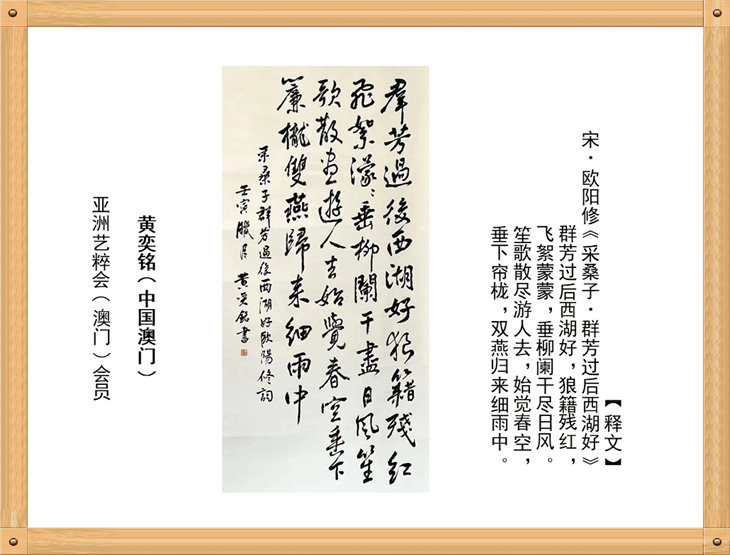 【释文】
宋·欧阳修《采桑子·群芳过后西湖好》
群芳过后西湖好，狼籍残红，
飞絮蒙蒙，垂柳阑干尽日风。
笙歌散尽游人去，始觉春空，
垂下帘栊，双燕归来细雨中。
羣芳過後西湖好狼籍殘红
飛絮濛〻垂柳闌干盡日风笙
歌散盡遊人去始覺春空垂下
簾櫳雙燕歸来细雨中
采桑子群芳過後西湖好欧陽修詞
壬寅臘月 黄奕銘書
黄奕铭（中国澳门）
亚洲艺粹会（澳门）会员